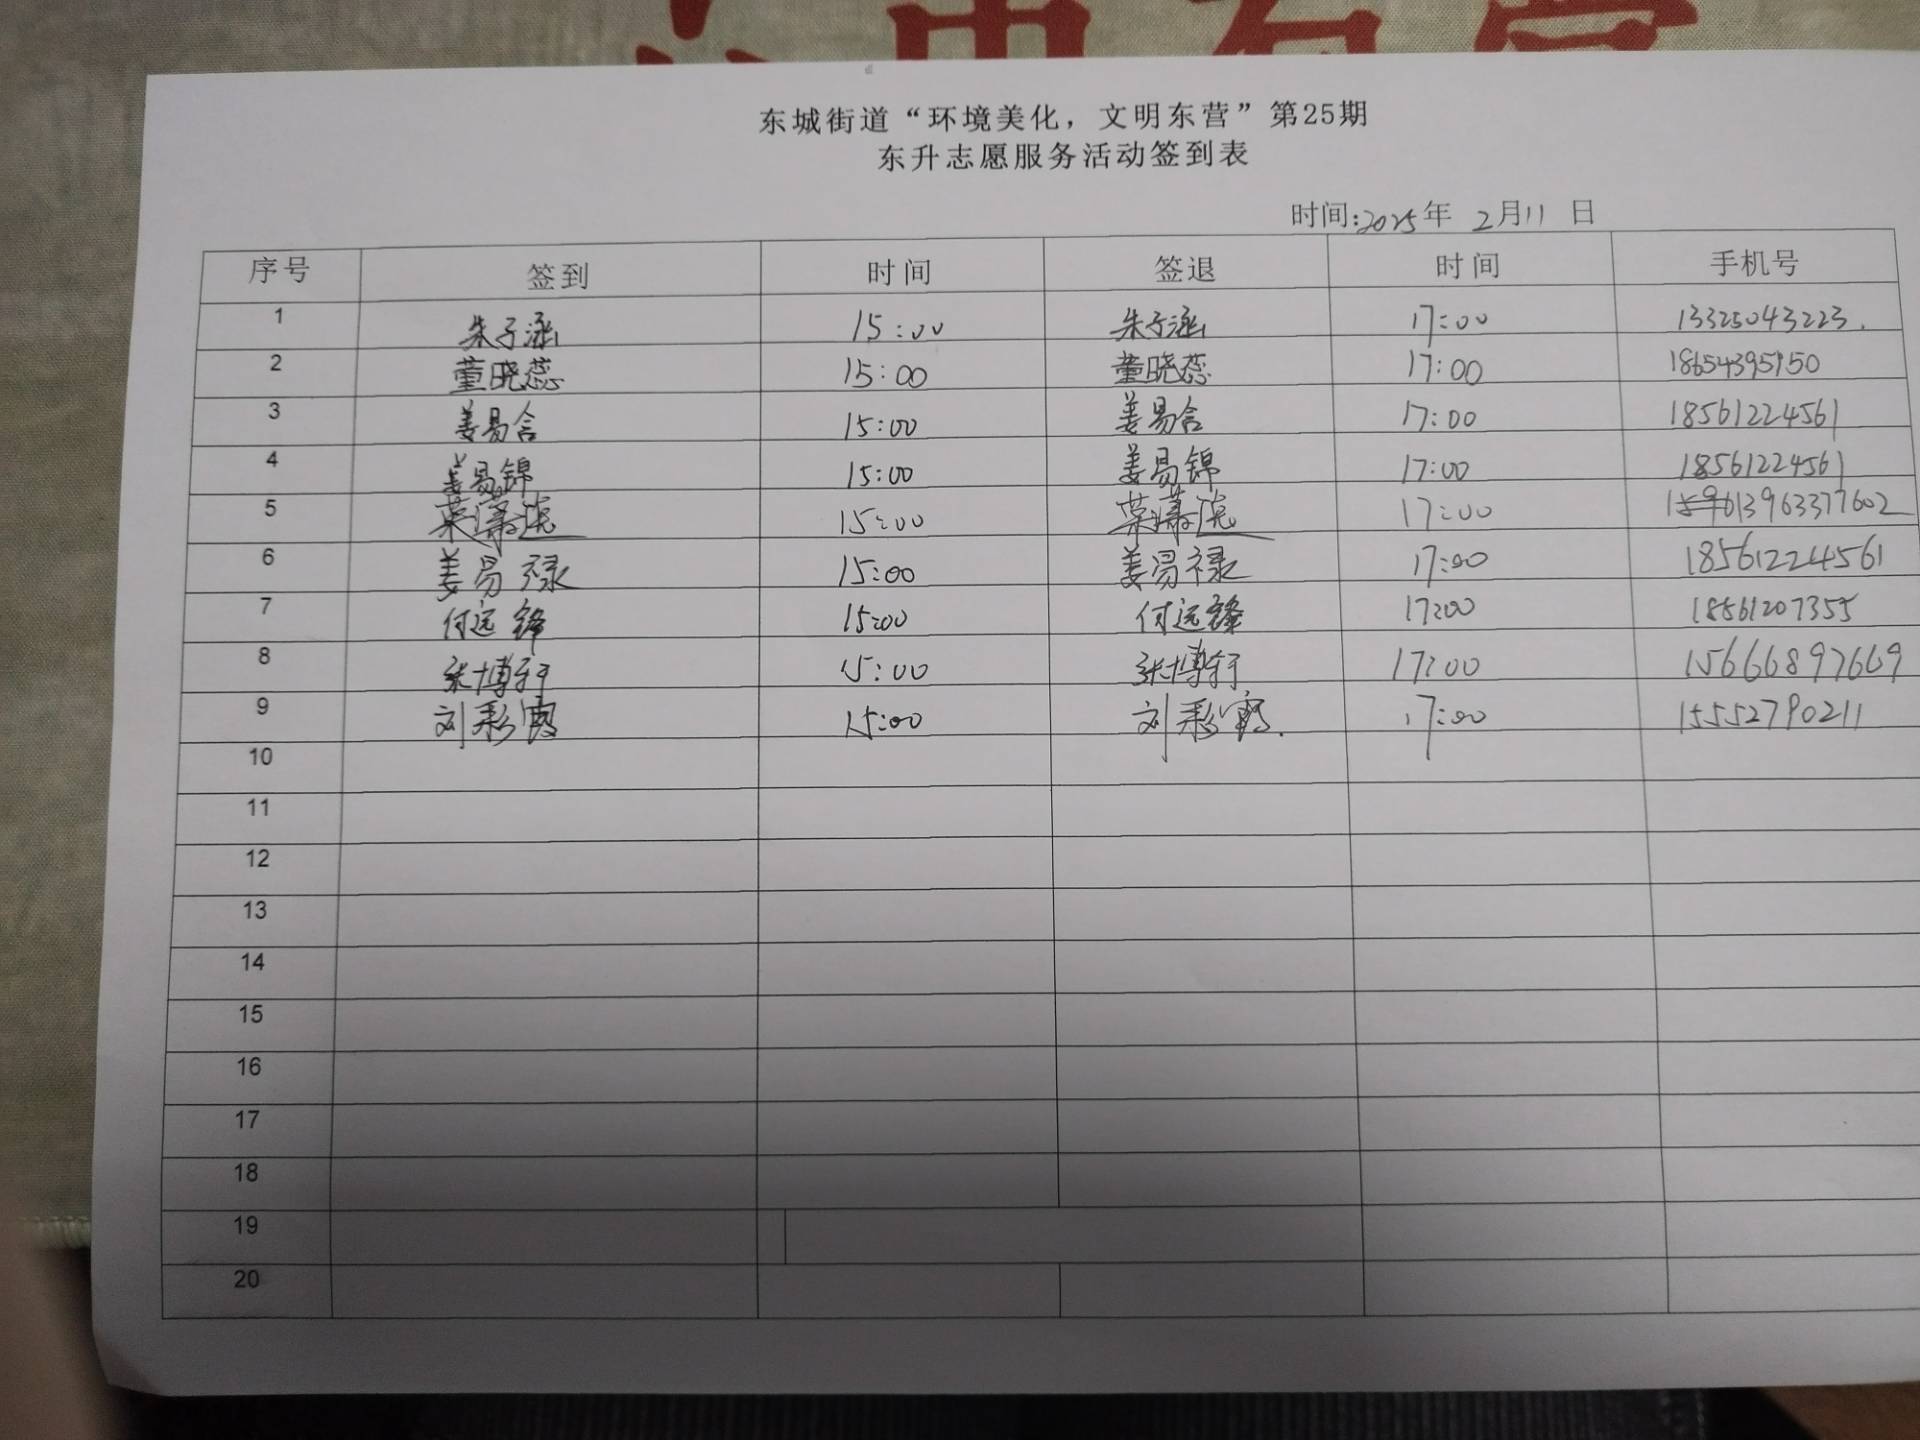 东城街道“环境美化，文明东营”第25期
东升志愿服务活动签到表
时间:2025年 2月11 日
序号 签到 时间 签退 时间 手机号
1 朱子涵 15:00 朱子涵 17:00 13325043223.
2 董晓蕊 15:00 董晓蕊 17:00 18654395150
3 姜易含 15:00 姜易含 17:00 18561224561
4 姜易锦 15:00 姜易锦 17:00 18561224561
5 15:00 17:00 13963377602
6 姜易禄 15:00 姜易禄 17:00 18561224561
7 付远锋 15:00 付远锋 17:00 18561207355
8 张博轩 15:00 张博轩 17:00 15666897669
9 刘彩霞 15:00 刘彩霞. 17:00 15552790211
10
11
12
13
14
15
16
17
18
19
20